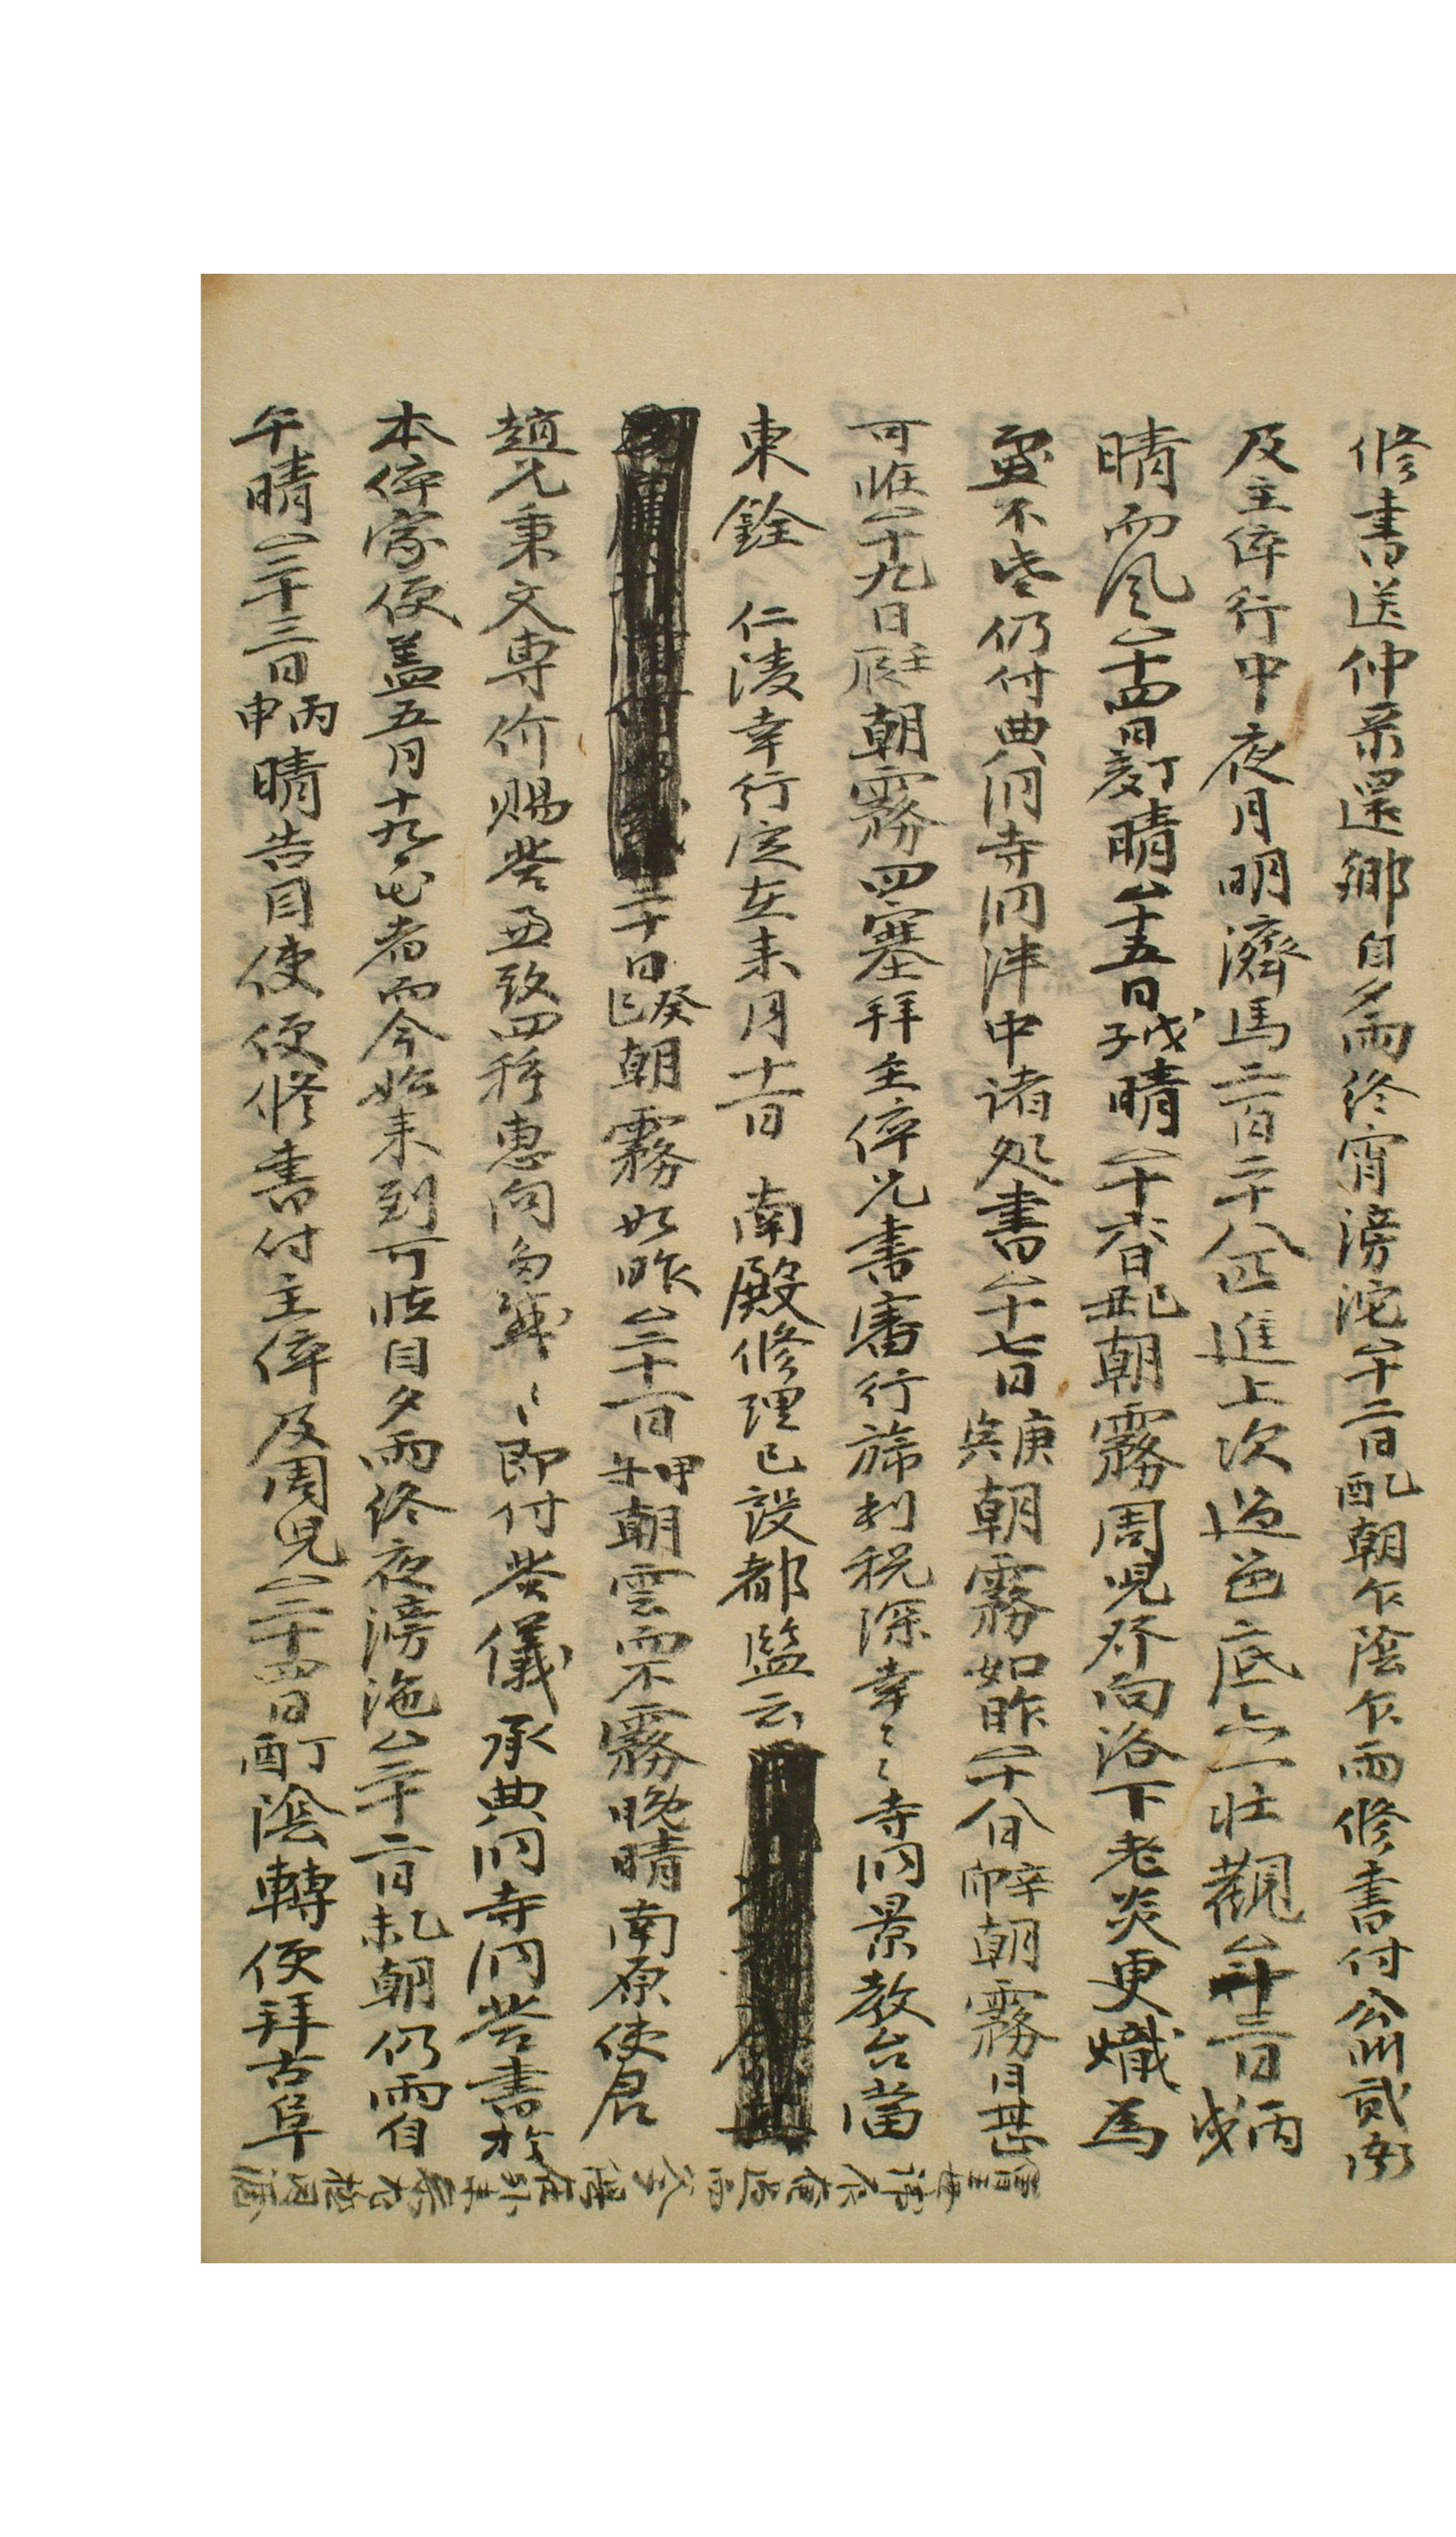 修書送仲祭還鄕自夕雨終宵滂沱△十二日乙酉朝乍陰乍雨修書付公州貳衙
及主倅行中夜月明濟馬二百二十八匹進上次過邑底亦一壯觀△十三日丙戌
晴而風△十四日丁亥晴△十五日戊子晴△十六日己丑朝霧周兒发向洛下老炎更熾爲
慮不些仍付典洞寺洞泮中諸処書△十七日庚寅朝霧如昨△十八日辛卯朝霧日甚
可怪△十九日壬辰朝霧四塞拜主倅兄書審行旆利稅深幸〻〻寺洞景敎台當
東銓 仁陵幸行定在来月十一日 南殿修理已設都監云
二十日癸巳朝霧如昨△二十一日甲午朝雲而不霧晩晴南原使君
趙兄秉文專价賜答兼致四種惠向多荷〻〻卽付答儀承典洞寺洞答書於
本倅家便盖五月十九出者而今始来到可怪自夕雨終夜滂沱△二十二日乙未朝仍雨自
午晴△二十三日丙申晴告目使便修書付主倅及周兒△二十四日丁酉陰轉便拜古阜